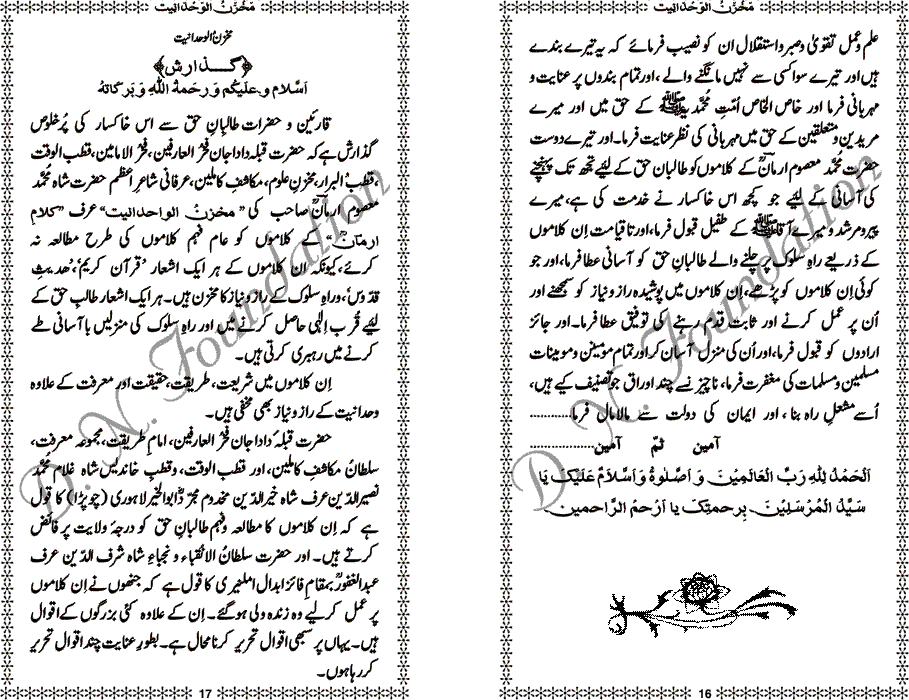 مَخْزَنُ الوَحدَانِیت
علم و عمل تقویٰ و صبر و استقلال ان کو نصیب فرمائے کہ یہ تیرے بندے
ہیں اور تیرے سوا کسی سے نہیں مانگنے والے، اور تمام بندوں پر عنایت و
مہربانی فرما اور خاص الخاص اُمّتِ مُحمّدیہﷺ کے حق میں اور میرے
مریدین و متعلقین کے حق میں مہربانی کی نظر عنایت فرما۔ اور تیرے دوست
حضرت مُحمّد معصوم ارمانؒ کے کلاموں کو طالبان حق کے لیئے تُجھ تک پہنچنے
کی آسانی کے لیئے جو کچھ اس خاکسار نے خدمت کی ہے، اِسے میرے
پیر و مرشد و میرے آقاﷺ کے طفیل قبول فرما، اور تا قیامت اِن کلاموں
کے ذریعے راہِ سلوک پر چلنے والے طالبانِ حق کو آسانی عطا فرما، اور جو
کوئی اِن کلاموں کو پڑھے، اِن کلاموں میں پوشیدہ راز و نیاز کو سمجھنے اور
اُن پر عمل کرنے اور ثابت قدم رہنے کی توفیق عطا فرما۔ اور جائز
ارادوں کو قبول فرما، اور اُن کی منزل آسان کر اور تمام مومنین و مومینات
مسلمین و مسلمات کی مغفرت فرما، ناچیز نے چند اوراق جو تصنیف کیے ہیں،
اُسے مشعلِ راہ بنا، اور ایمان کی دولت سے مالا مالی فرما............
آمین ثمّ آمین................
اَلحَمدُ لِلّٰهِ رَبِّ العَالَمِیْنَ وَ اَصّلٰوةُ وَ اَسّلَامُ عَلَیْکَ یَا
سَیِّدَ الْمُرْسَلِیْنَ بِرحمتِکَ یا اَرحَمَ الرَّاحمین.
16
مَخْزَنُ الوَحدَانِیت
مخزنُ الوحدانیت
﴿گذارش﴾
اَسَّلَام وعَلَیکُم وَ رَحمَةُ اللّٰهِ وَ بَرَکَاتُهٗ
قارئین و حضرات طالبانِ حق سے اس خاکسار کی پُر خلوص
گذارش ہے کہ حضرت قبلہ دادا جان فخرُ العارفین، فخرُ الامامین، قطب الوقت
،قطبُ البرار، مخزنِ علوم، مکاشفِ کاملین، عرفانی شاعرِ اعظم حضرت شاہ مُحمّد
معصوم ارمانؒ صاحب کی "مخزنُ الواحدانیت" عرف "کلامِ
ارمانؒ" کے کلاموں کو عام فہم کلاموں کی طرح مطالعہ نہ
کرئے، کیونکہ ان کلاموں کے ہر ایک اشعار 'قرآنِ کریم'، 'حدیثِ
قدّوس'، و راہِ سلوک کے راز و نیاز کا مخزن ہیں۔ ہر ایک اشعار طالبِ حق کے
لیئے قُربِ اِلٰہی حاصل کرنے میں اور راہِ سلوک کی منزلیں با آسانی طے
کرنے میں رہبری کرتی ہیں۔
اِن کلاموں میں شریعت، طریقت، حقیقت اور معرفت کے علاوہ
وحدانیت کے راز و نیاز بھی مخفی ہیں۔
حضرت قبلہ دادا جان فخرُ العارفین، امامِ طریقت، مجموعہ معرفت،
سلطانُ مکاشفِ کاملین، اور قطب الوقت، وقطبِ خاندیس شاہ غلام مُحمّد
نصیر الدّین عرف شاہ خیر الدّین مخدوم مجرّد ابو الخیر لاہوری (چوپڑا) کا قول
ہے کہ اِن کلاموں کا مطالعہ و فہم طالبانِ حق کو درجہ ولایت پر فائض
کرتے ہیں۔ اور حضرت سلطانُ الانقباء و نجباءِ شاہ شرف الدّین عرف
عبدالغفورؒ بمقام فائز ابدال املنیری کا قول ہے کہ جنھوں نے اِن کلاموں
پر عمل کر لیے وہ زندہ ولی ہو گئے۔ اِن کے علاوہ کئی بزرگوں کے اقوال
ہیں۔ یہاں پر سبھی اقوال تحریر کرنا محال ہے۔ بطورِ عنایت چند اقوال تحریر
کر رہا ہوں۔
17
D. N. Foundation
D. N. Foundation